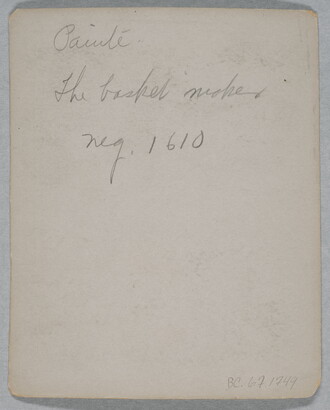 Paiute
The basket maker
neg. 1610
BC 67.1749